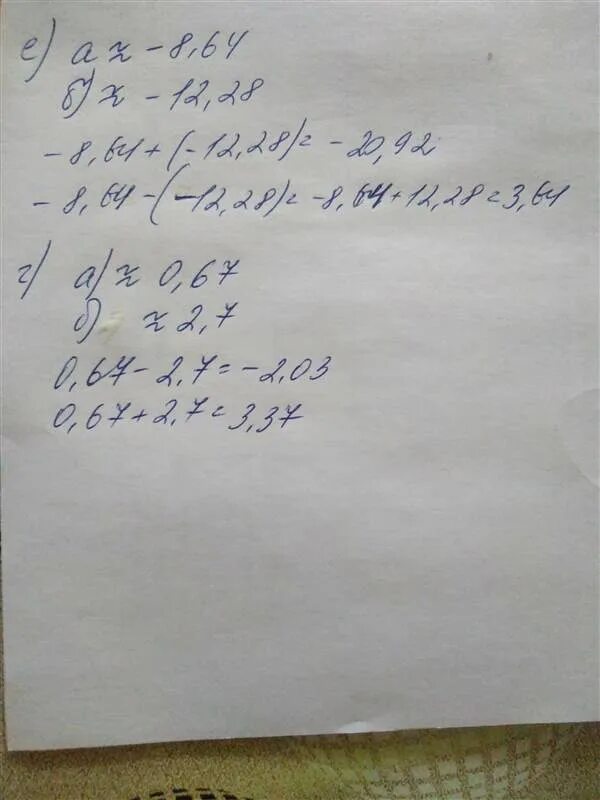 е) а ≈ -8,64
б) ≈ -12,28
-8,64+(-12,28)= -20,92
-8,64-(-12,28)= -8,64+12,28=3,64
г) а) ≈ 0,67
б) ≈ 2,7
0,67-2,7=-2,03
0,67+2,7=3,37